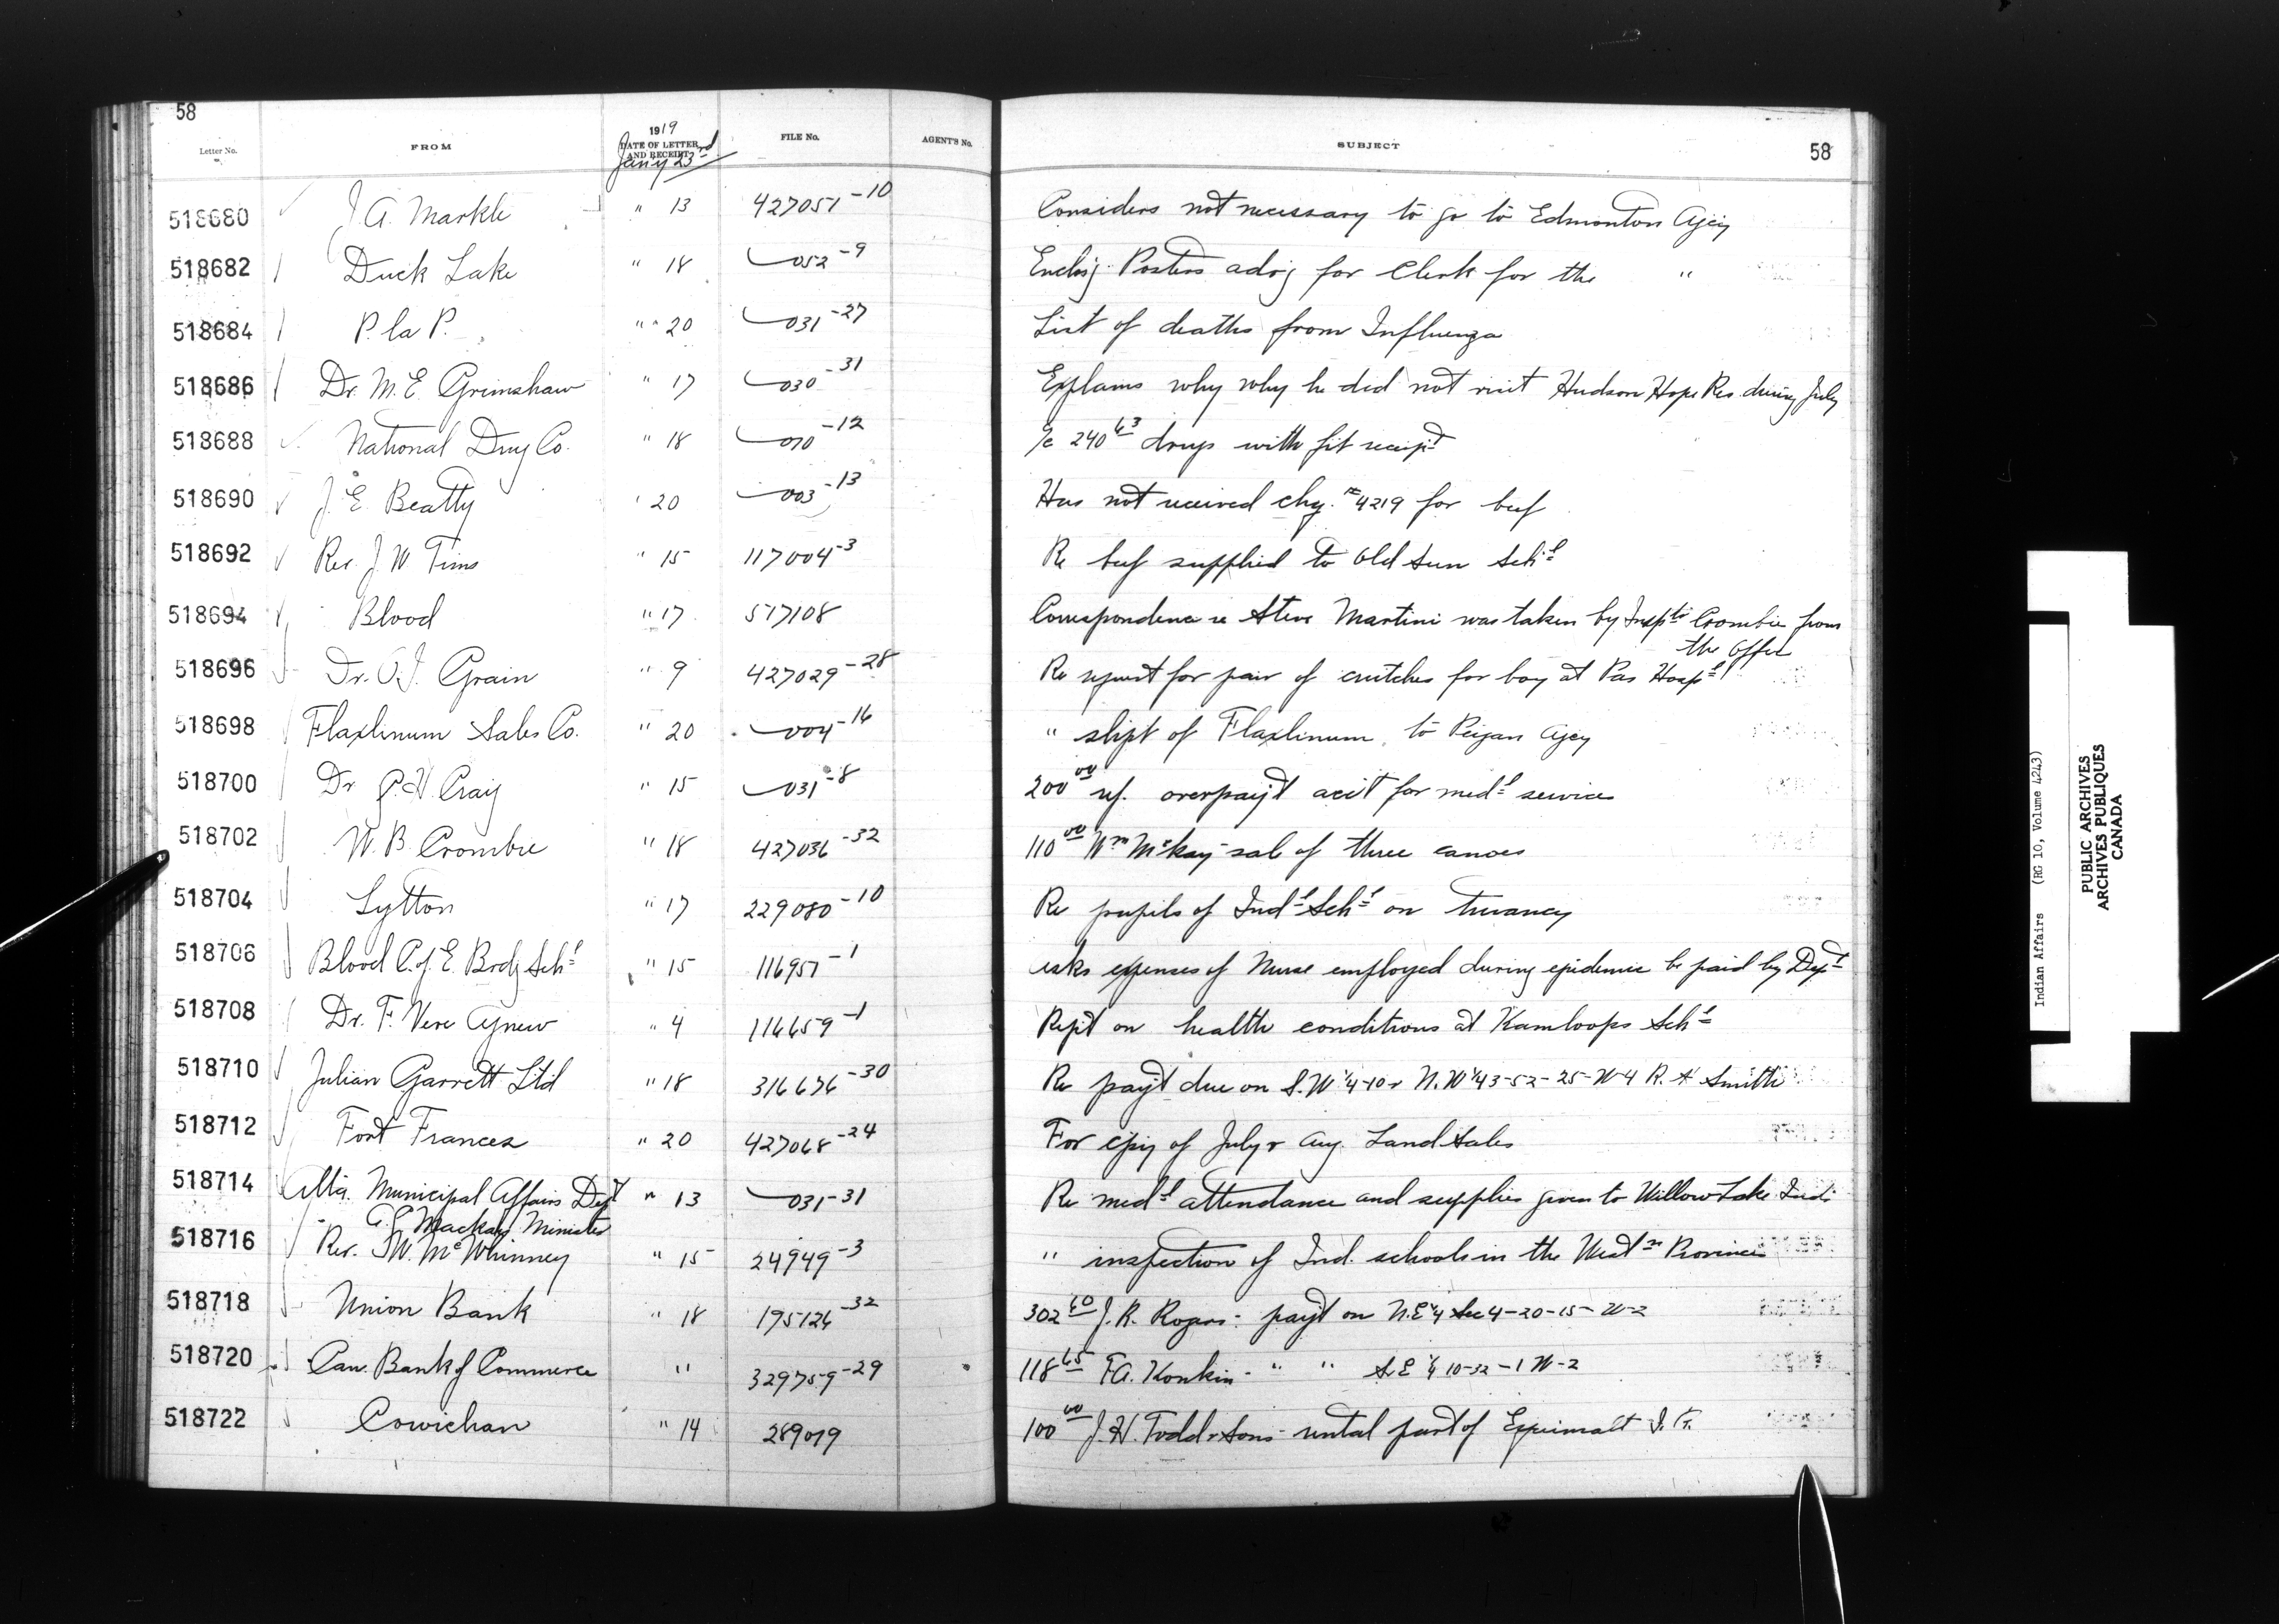 58
Letter No. FROM 1919 DATE OF LETTER AND RECEIPT FILE No. AGENT'S No. SUBJECT 58
Jan'y 23rd
518680 J. A. Markle " 13 427051-10 Considers not necessary to go to Edmonton Agcy
518682 Duck Lake " 18 052-9 Enclsg. Posters advg for Clerk for the "
518684 P. la P. " 20 031-27 List of deaths from Influenza
518686 Dr. M. E. Grimshaw " 17 030-31 Explains why why he did not visit Hudson Hope Res. during July
518688 National Drug Co. " 18 010-12 a/c 240 63 drugs with frt receipt
518690 J. E. Beatty " 20 003-13 Has not received chq. # 4219 for beef
518692 Rev. J. W. Tims " 15 117004-3 Re beef supplied to Old Sun Schl
518694 Blood " 17 517108 Correspondence re Steve Martini was taken by Inspto Crombie from
the Office
518696 Dr. O. J. Grain " 9 427029-28 Re request for pair of crutches for boy at Pas Hospl
518698 Flaxlinum Sales Co. " 20 004-16 " shipt of Flaxlinum, to Peigan Agcy
518700 Dr P. H. Craig " 15 031-8 200 00 ref. overpay't acct for medl services
518702 W. B. Crombie " 18 427036-32 110 00 Wm McKay sale of three canoes
518704 Lytton " 17 229080-10 Re pupils of Indl Schl on truancy
518706 Blood C. of E. Brdg Schl " 15 116957-1 asks expenses of Nurse employed during epidemic be paid by Dept
518708 Dr. F. Vere Agnew " 4 116659-1 Rept on health conditions at Kamloops Schl
518710 Julian Garrett Ltd " 18 316676-30 Re pay't due on S.W 1/4-10 & N.W 1/4 3-52-25-W-4 R. A. Smith
518712 Fort Frances " 20 427068-24 For copy of July & Aug. Land Sales
518714 Alta. Municipal Affairs Dept " 13 031-31 Re medl attendance and supplies given to Willow Lake Inds
Mackay Minister
518716 Rev. J. W. McWhinney " 15 24949-3 " inspection of Ind. schools in the Westn Provinces
518718 Union Bank " 18 195126-32 302 60 J. R. Rogers: pay't on N.E 1/4 Sec 4-20-15-W-2
518720 Can. Bank of Commerce " 329759-29 118 65 F A. Konkin - " " S.E 1/4 10-32-1 W-2
518722 Cowichan " 14 289019 100 00 J. H. Todd & Sons - rental part of Esquimalt I. R.
Indian Affairs (RG 10, Volume 4243)
PUBLIC ARCHIVES
ARCHIVES PUBLIQUES
CANADA